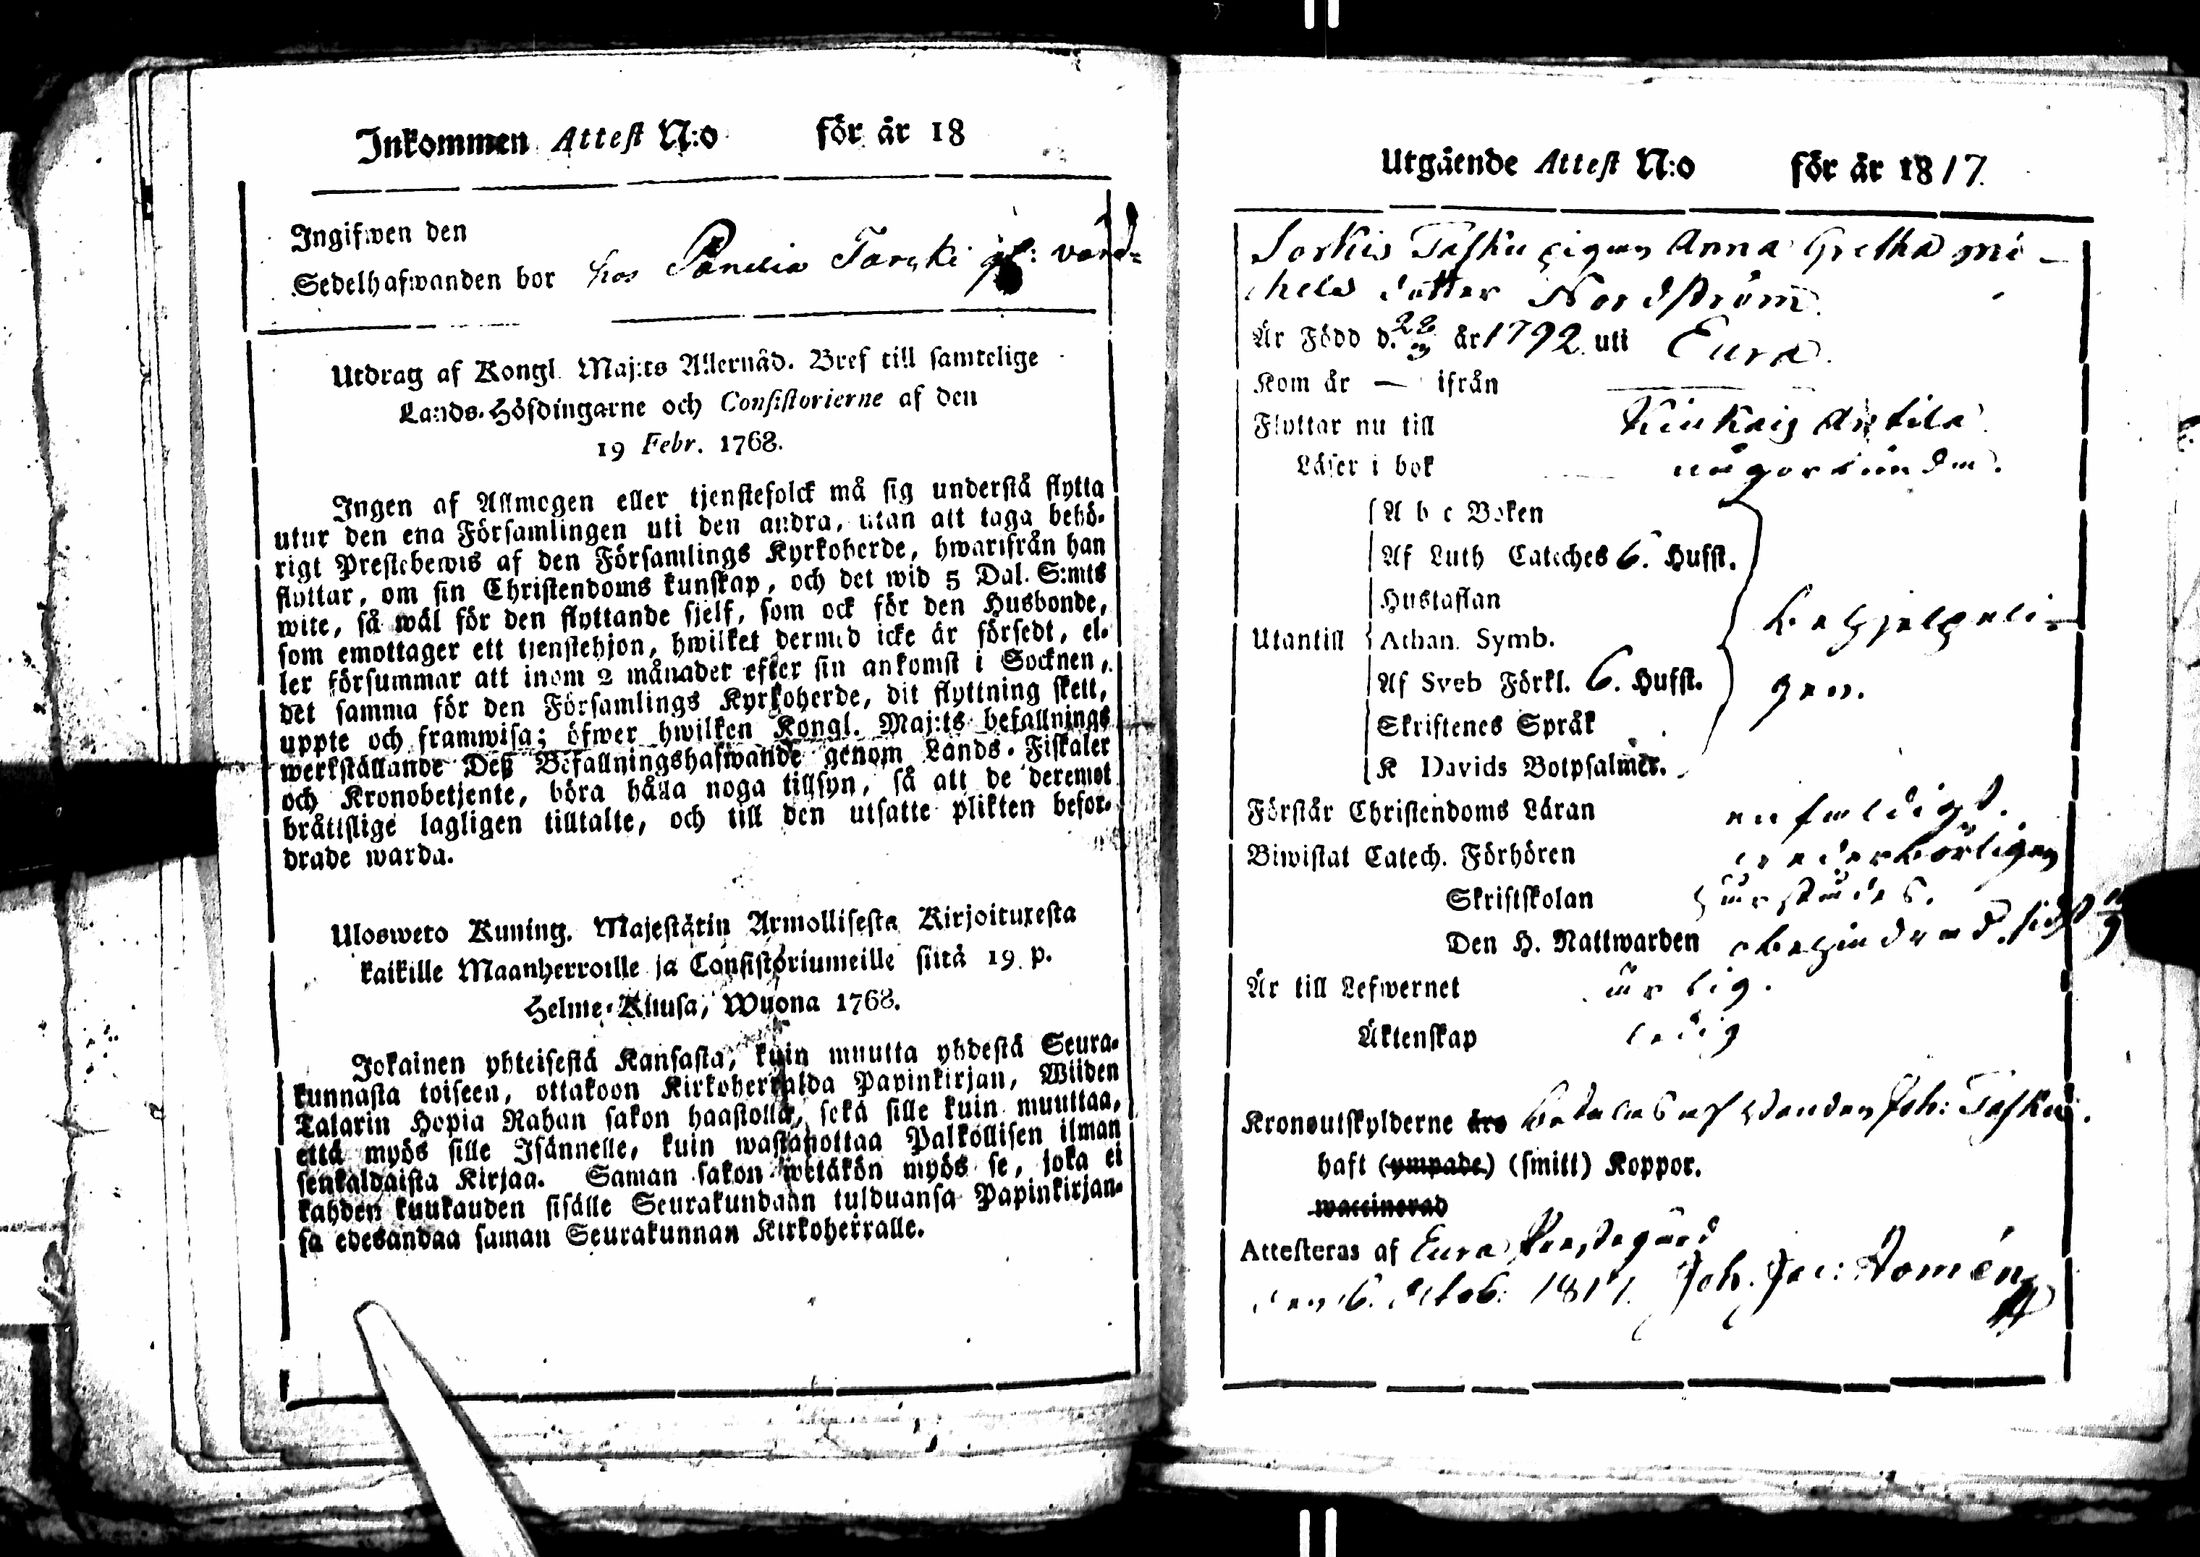 Inkommen Attest N:o för år 18
Ingifwen den
Sedelhafwanden bor hos
Utdrag af Kongl. Maj:ts Allernåd. Bref till samtelige
Lands-Höfdingarne och Consistorierne af den
19 Febr. 1768.
Ingen af Allmogen eller tjenstefolck må sig understå flytta
utur den ena Församlingen uti den andra, utan att taga behö-
rigt Prestebewis af den Församlings Kyrkoherde, hwarifrån han
flyttar, om sin Christendoms kunskap, och det wid 5 Dal. S:mts
wite, så wäl för den flyttande sjelf, som ock för den Husbonde,
som emottager ett tjenstehjon, hwilket dermed icke är försedt, el-
ler försummar att inom 2 månader efter sin ankomst i Socknen,
det samma för den Församlings Kyrkoherde, dit flyttning skett,
uppte och framwisa; öfwer hwilken Kongl. Maj:ts befallnings
werkställande Deß Befallningshafwande genom Lands-Fiskaler
och Kronobetjente, böra hålla noga tillsyn, så att de deremot
bråttslige lagligen tilltalte, och till den utsatte plikten befor-
drade warda.
Ulosweto Kuning. Majestätin Armollisesta Kirjoituxesta
kaikille Maanherroille ja Consistoriumeille siitä 19 p.
Helme-Kuusa, Wuona 1768.
Jokainen yhteisestä Kansasta, kuin muutta yhdestä Seura-
kunnasta toiseen, ottakoon Kirkoherralda Papinkirjan, Wiiden
Talarin Hopia Rahan sakon haastolla, sekä sille kuin muuttaa,
että myös sille Isännelle, kuin wastanottaa Palkollisen ilman
senkaldaista Kirjaa. Saman sakon wetäkön myös se, joka ei
kahden kuukauden sisälle Seurakundaan tulduansa Papinkirjan-
sa edesandaa saman Seurakunnan Kirkoherralle.
Utgående Attest N:o för år 1817.
Sorkis Tasku pigan Anna Gretha Mi-
chels dotter Nordström
Är Född d. 22 år 1792 uti Eura.
Kom år — ifrån
Flyttar nu till Kiukais Anttila
Läser i bok någorlunda.
A b c Boken
Af Luth Cateches 6. Hufst.
Hustaflan
Utantill Athan. Symb. behjelpeli-
Af Sveb Förkl. 6. Hufst. gen.
Skriftenes Språk
K Davids Botpsalmer.
Förstår Christendoms Läran enfaldigt.
Biwistat Catech. Förhören wederbörligen
Skriftskolan
Den H. Nattwarden obehindrad. sidst
Är till Lefwernet ärlig.
Äktenskap ledig
Kronoutskylderne äro betalas af bonden Joh: Tasku.
haft (ympade) (smitt) Koppor.
waccinerad
Attesteras af Eura Prestegård
den 6. Octob: 1817. Joh. Jac: Nomén